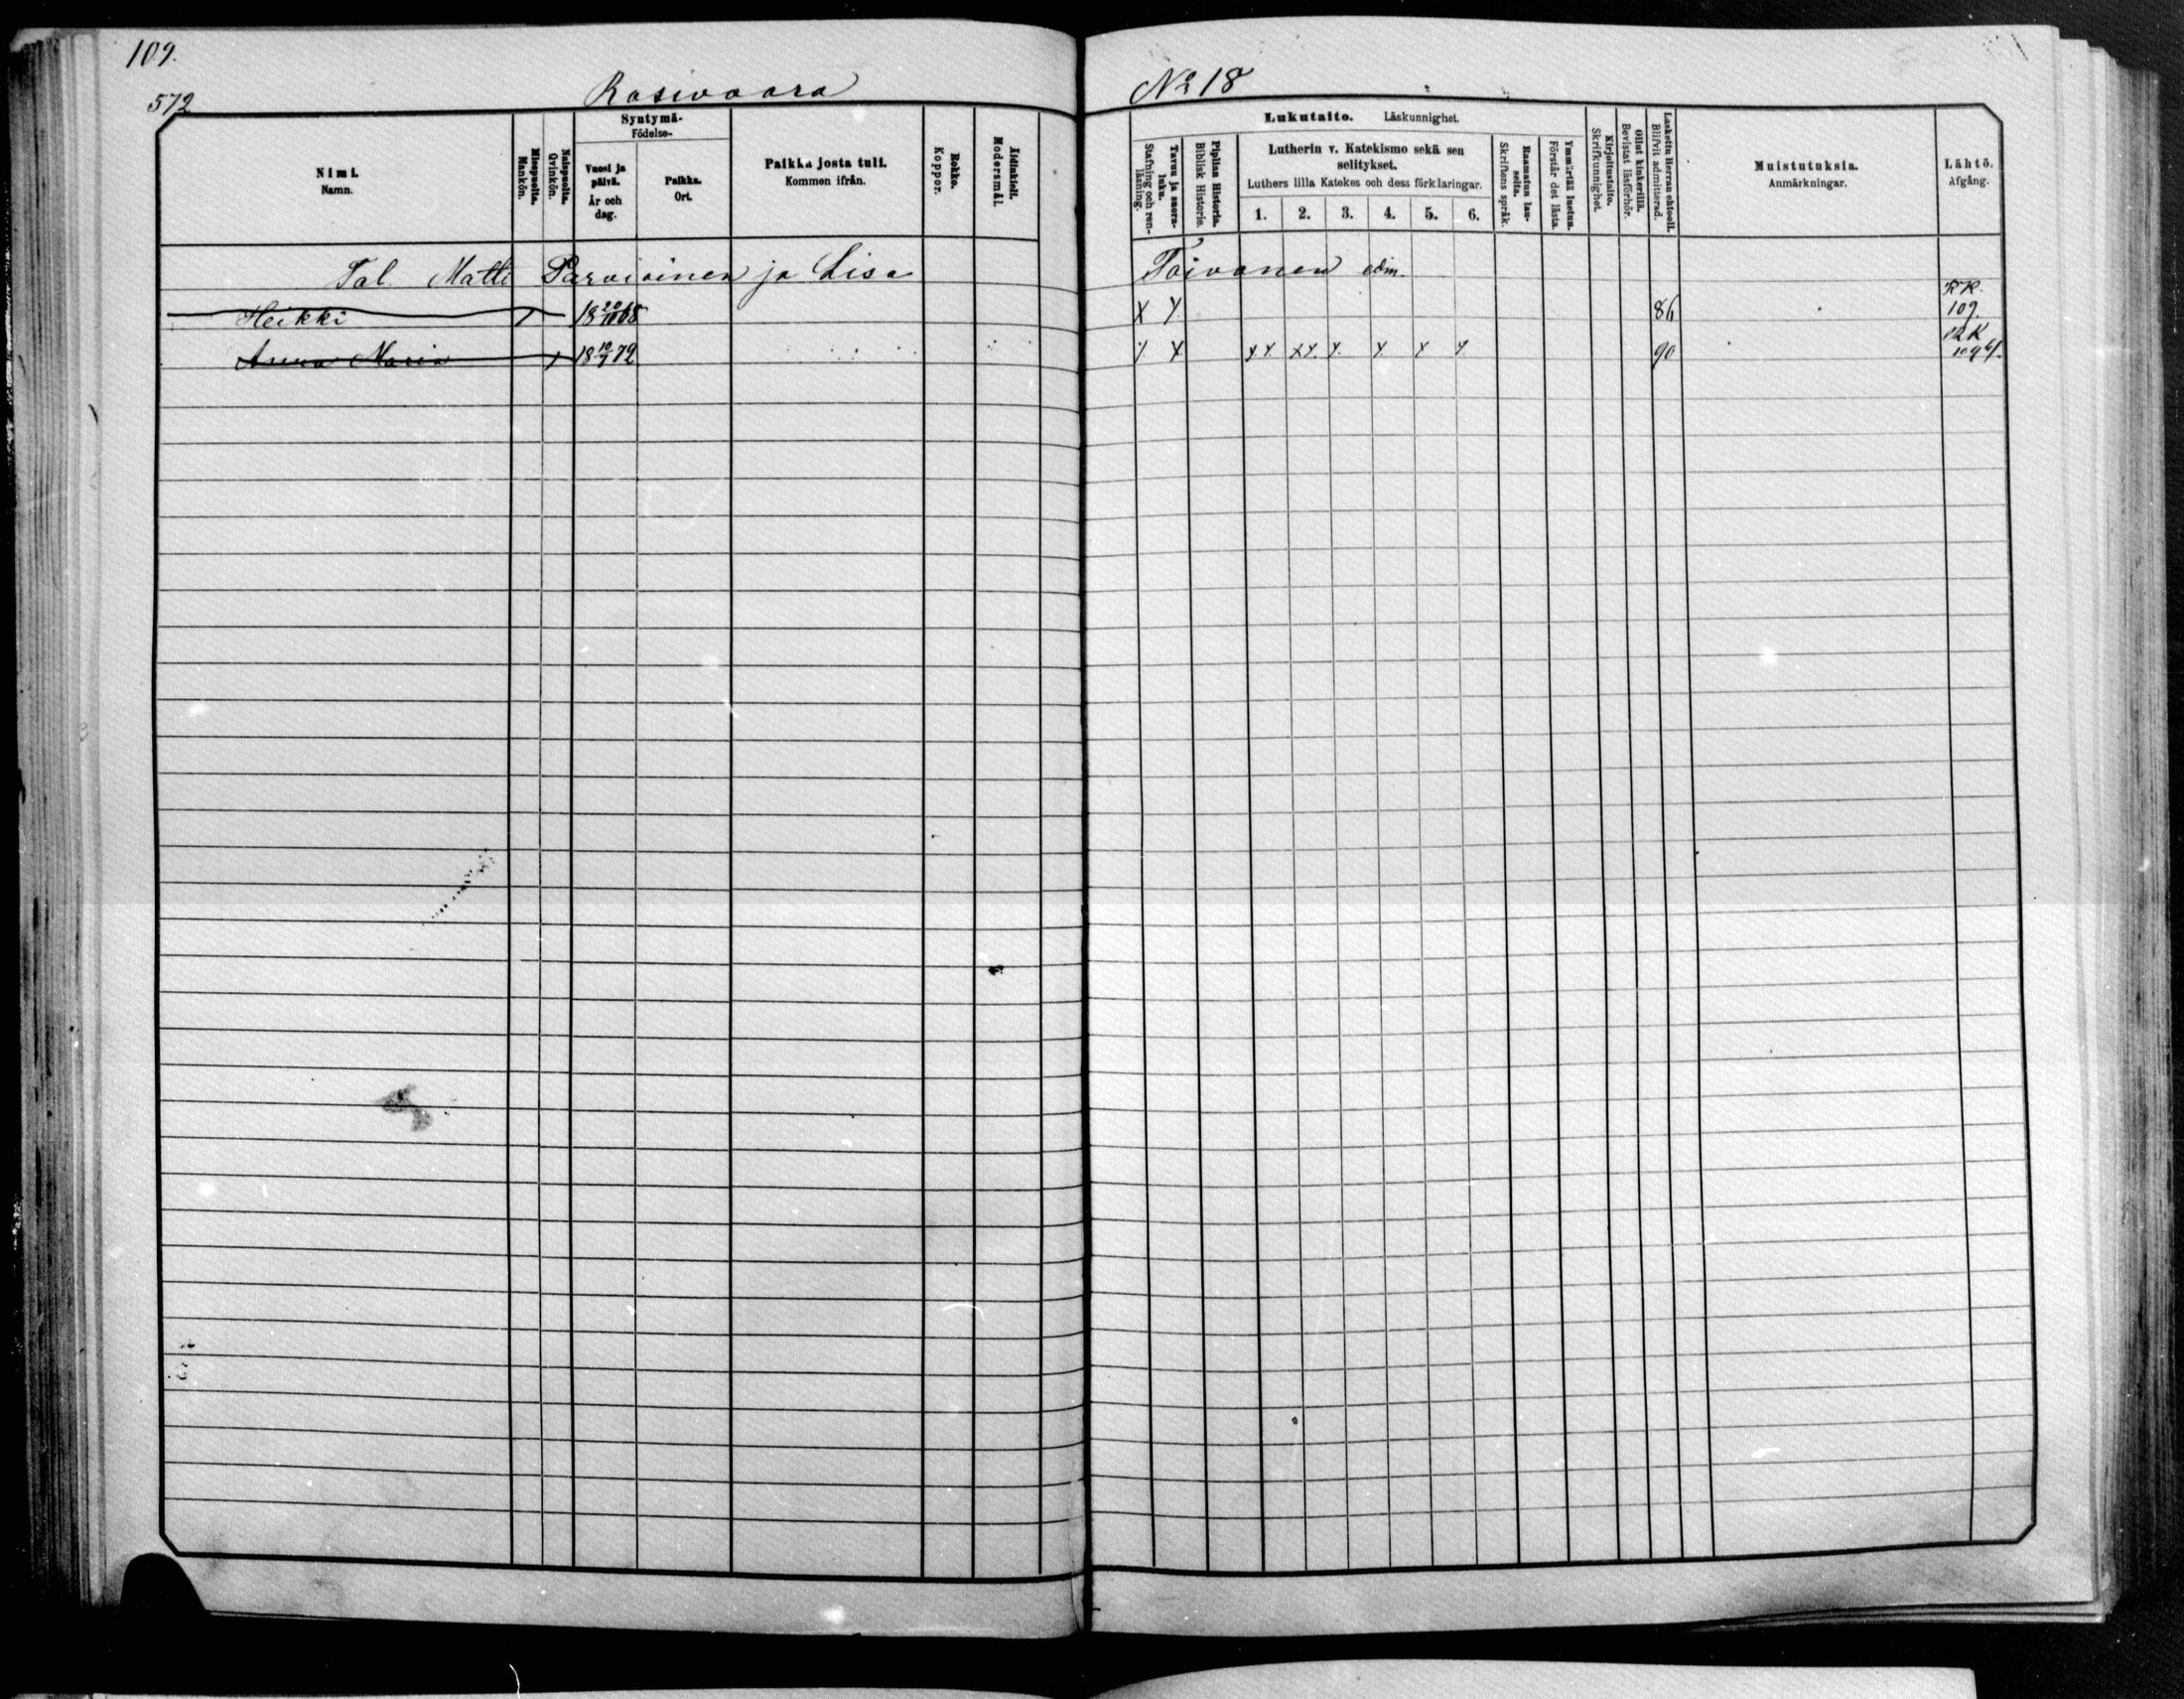 109.
572
Rasivaara
No 18
Nimi.
Namn.
Miespuolia.
Mankön.
Naispuolia.
Qvinkön.
Syntymä-
Födelse-
Vuosi ja päivä.
År och dag.
Paikka.
Ort.
Paikka josta tuli.
Kommen ifrån.
Rokko.
Koppor.
Äidinkieli.
Modersmål.
Lukutaito. Läskunnighet.
Tavuu ja suora-luku.
Stafning och ren-läsning.
Piplian Historia.
Biblisk Historie.
Lutherin v. Katekismo sekä sen
selitykset.
Luthers lilla Katekes och dess förklaringar.
1. 2. 3. 4. 5. 6.
Raamatun lau-seita.
Skriftens språk.
Ymmärtää luetun.
Förstår det lästa.
Kirjoitustaito.
Skrifkunnighet.
Ollut kinkerillä.
Bevistat läsförhör.
Laskettu Herran ehtooll.
Blifvit admitterad.
Muistutuksia.
Anmärkningar.
Lähtö.
Afgång.
Tal. Matti Parviainen ja Lisa Toivanen edm.
Heikki 1 18 20/10 68 X Y 86 RK. 109.
Anna Maria 1 18 10/7 72 Y X XY. XY. Y. Y. Y Y 90 RK 109